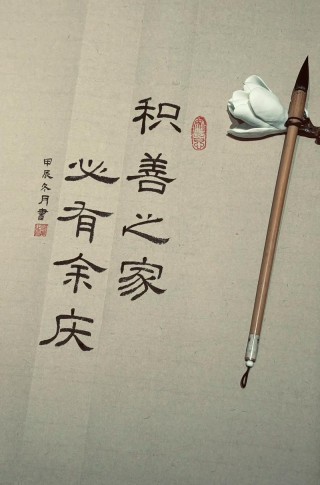 积善之家
必有余庆
甲辰冬月書